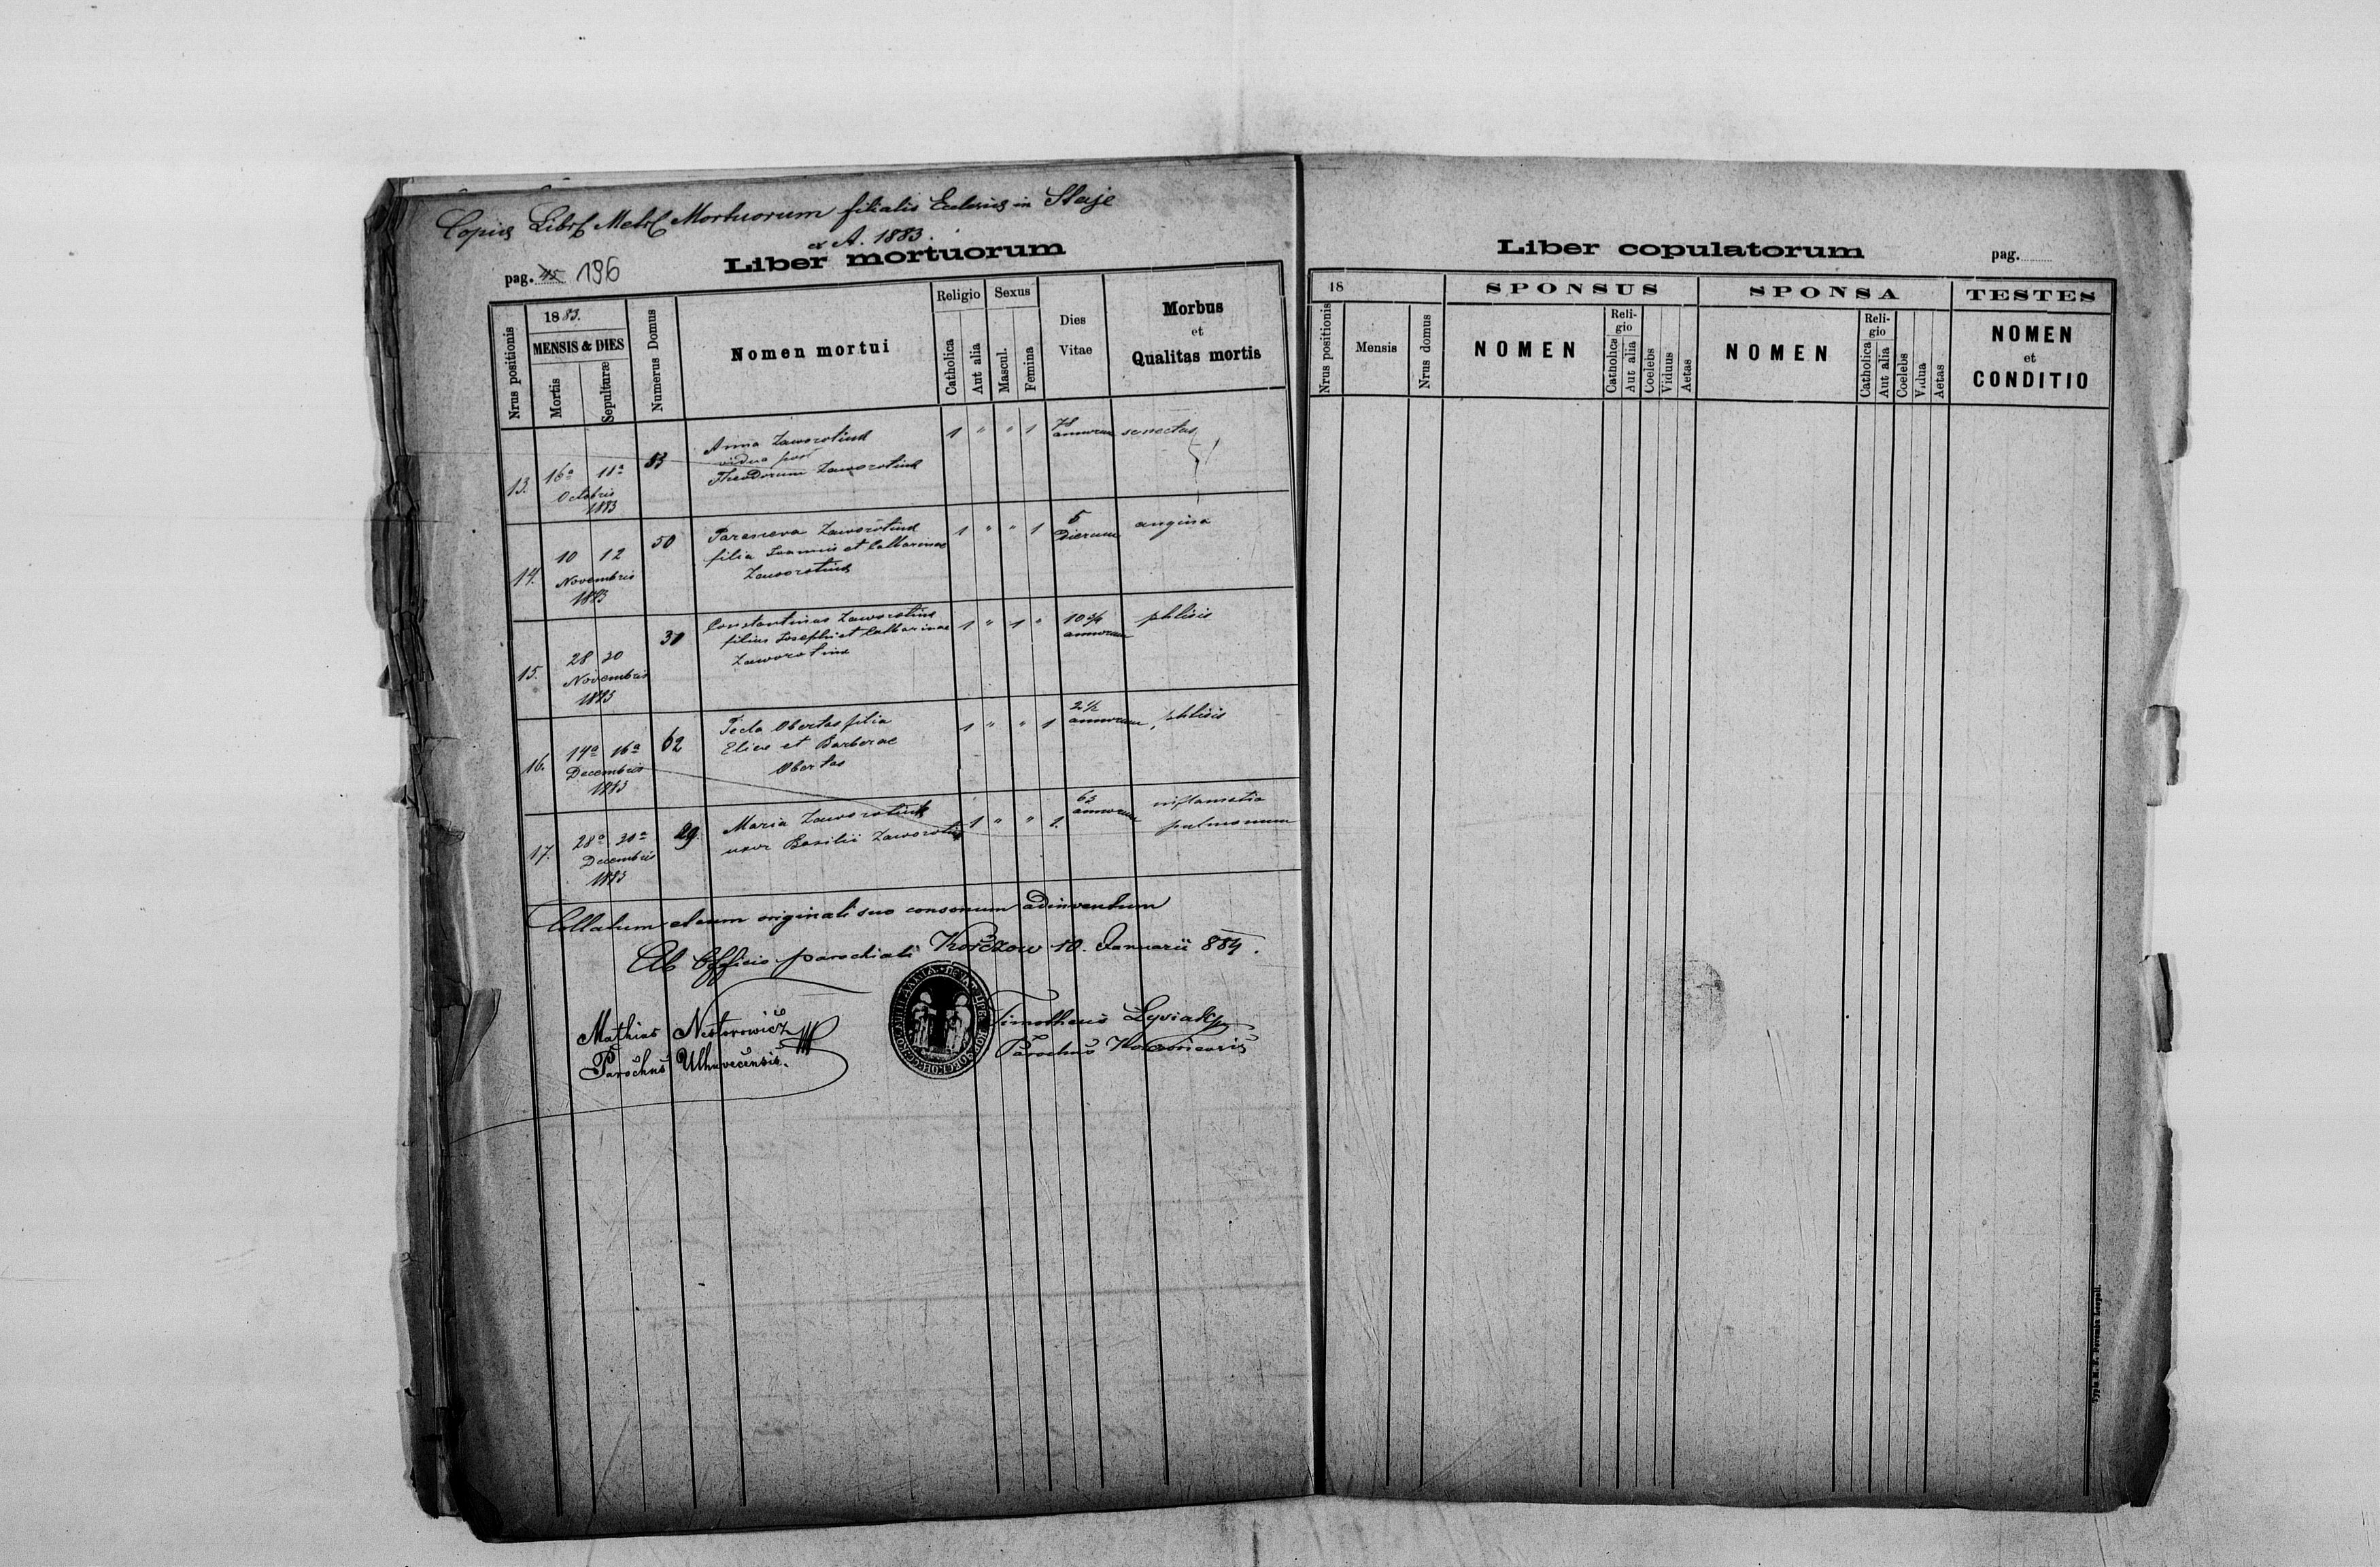 Copia Libri Metr. Mortuorum filialis Ecclesiae in Staje
ex A. 1883.
Liber mortuorum
pag. 196
Nrus positionis
1883.
MENSIS & DIES
Mortis
Sepulturæ
Numerus Domus
Nomen mortui
Religio
Catholica
Aut alia
Sexus
Mascul.
Femina
Dies
Vitae
Morbus
et
Qualitas mortis
13. 16a 18a 83 Anna Zaworotiuk 1 " " 1 78 annorum senectus
Octobris vidua post
1883 Theodorum Zaworotiuk
14. 10 12 50 Parasceva Zaworotiuk 1 " " 1 5 Dierum angina
Novembris filia Joannis et Catharinae
1883 Zaworotiuk
15. 28 30 31 Constantinus Zaworotiuk 1 " 1 " 10 3/4 annorum phtisis
Novembris filius Josephi et Catharinae
1883 Zaworotiuk
16. 14a 16a 62 Tecla Obertas filia 1 " " 1 2 1/2 annorum phtisis
Decembris Eliae et Barbarae
1883 Obertas
17. 28a 30a 29. Maria Zaworotiuk 1 " " 1. 63 annorum inflamatio
Decembris uxor Basilii Zaworotiuk pulmonum
1883
Collatum et cum originali suo consonum adinventum
Ab Officio parochiali Korczow 10. Januarii 884.
Mathias Nestorowicz
Parochus Uhnovecensis.
Timotheus
Parochus
Liber copulatorum
pag.
18
Nrus positionis
Mensis
Nrus domus
SPONSUS
NOMEN
Reli-
gio
Catholica
Aut alia
Coelebs
Viduus
Aetas
SPONSA
NOMEN
Reli-
gio
Catholica
Aut alia
Coelebs
Vidua
Aetas
TESTES
NOMEN
et
CONDITIO